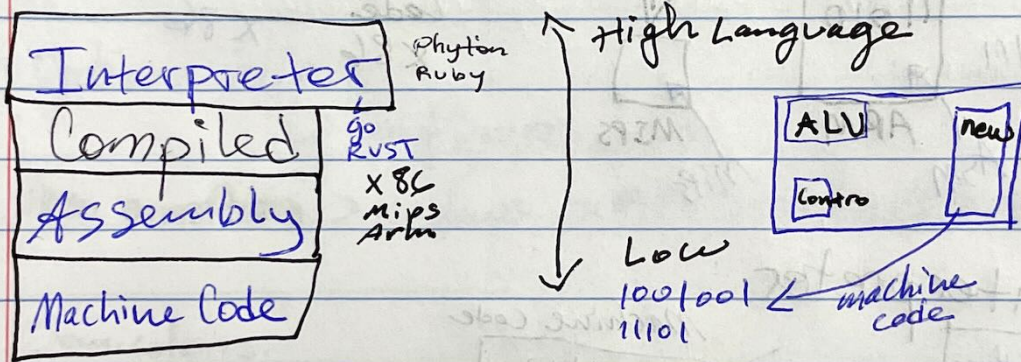 Interpreter
Phyton
Ruby
Compiled
go
RUST
Assembly
X86
Mips
Arm
Machine Code
High Language
Low
1001001
11101
ALU
Contro
machine
code